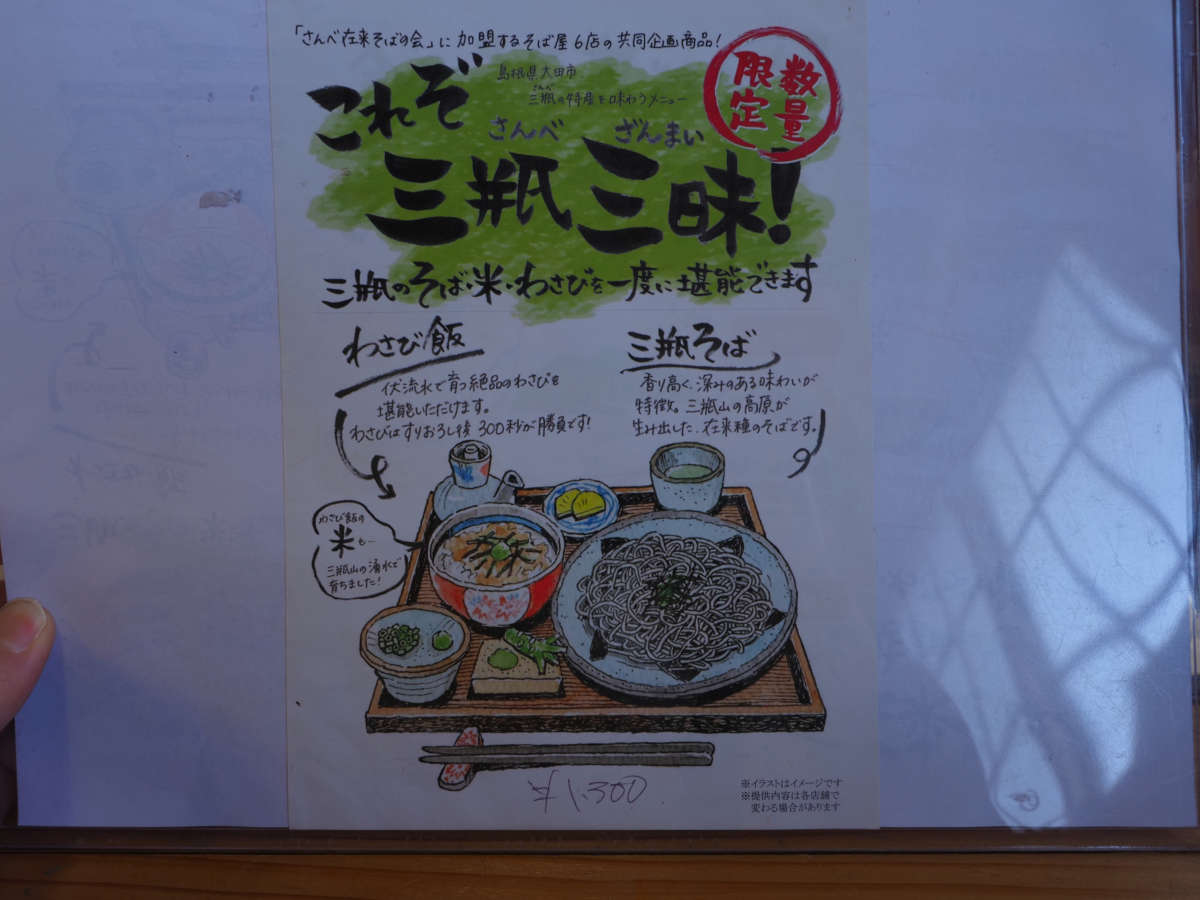 「さんべ在来そばの会」に加盟するそば屋6店の共同企画商品!
数量
限定
島根県大田市
さんべ
三瓶の特産を味わうメニュー
これぞ
さんべ ざんまい
三瓶三昧!
三瓶のそば・米・わさびを一度に堪能できます
わさび飯
伏流水で育つ絶品のわさびを
堪能いただけます。
わさびはすりおろし後300秒が勝負です!
三瓶そば
香り高く、深みのある味わいが
特徴。三瓶山の高原が
生み出した、在来種のそばです。
わさび飯の
米も…
三瓶山の湧水で
育ちました!
¥1,300
※イラストはイメージです
※提供内容は各店舗で
変わる場合があります